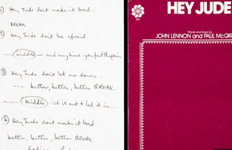 Hey Jude don't make it bad.
BREAK
Hey Jude don't be afraid
middle - and anytime you feel the pain
Hey Jude don't let me down
better, better, better BREAK.
middle let it out & let it in
Hey Jude don't make it bad
better, better, better BREAK
HEY JUDE
JOHN LENNON and PAUL McCAR